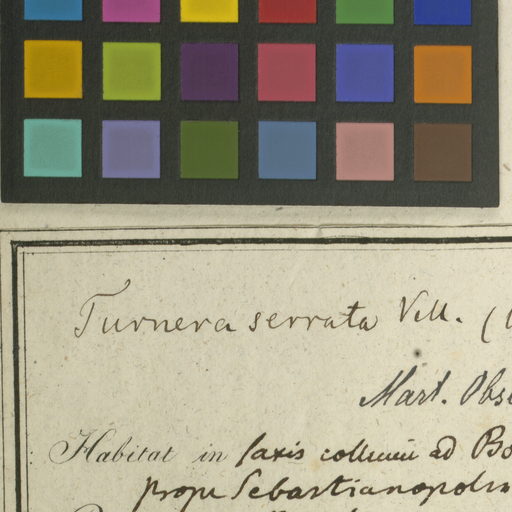 Turnera serrata Vell. (
Mart. Obs
Habitat in saxis collium ad Bo
prope Sebastianopolin